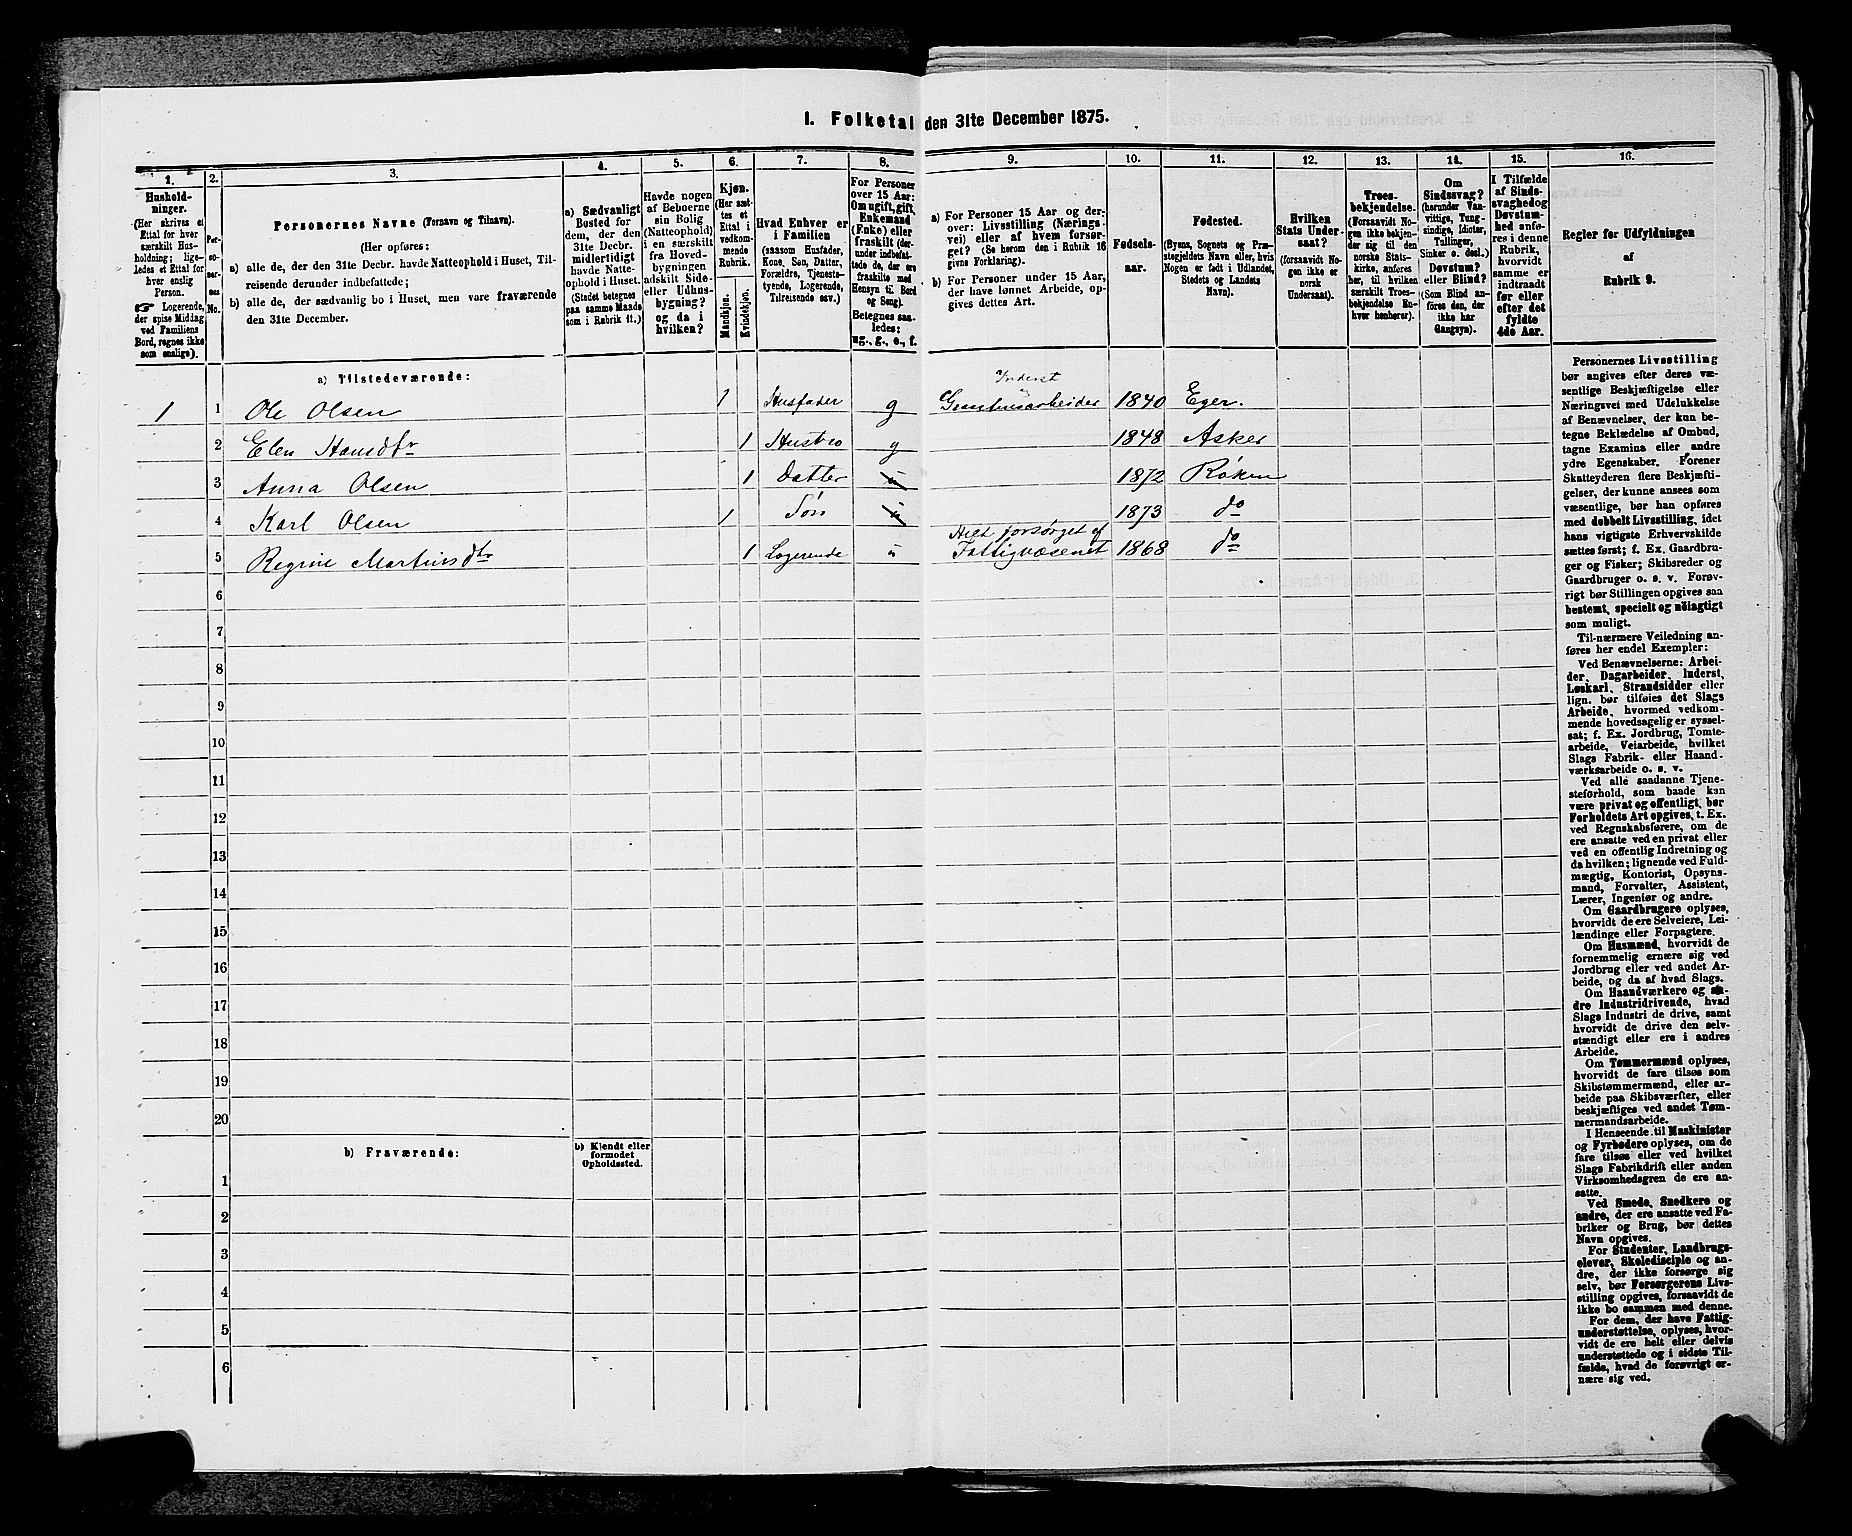 I. Folketal den 31te December 1875.
1.
Hushold-
ninger.
(Her skrives et
Ettal for hver
særskilt Hus-
holdning; lige-
ledes et Ettal for
hver enslig
Person.
☛ Logerende,
der spise Middag
ved Familiens
Bord, regnes ikke
som enslige).
2.
Per-
so-
ner-
nes
No.
3.
Personernes Navne (Fornavn og Tilnavn).
(Her opføres:
a) alle de, der den 31te Decbr. havde Natteophold i Huset, Til-
reisende derunder indbefattede;
b) alle de, der sædvanlig bo i Huset, men vare fraværende
den 31te December.
4.
a) Sædvanligt
Bosted for
dem, der den
31te Decbr.
midlertidigt
havde Natte-
ophold i Huset.
(Stedet betegnes
paa samme Maade
som i Rubrik 11.)
5.
Havde nogen
af Beboerne
sin Bolig
(Natteophold)
i en særskilt
fra Hoved-
bygningen
adskilt Side-
eller Udhus-
bygning?
og da i
hvilken?
6.
Kjøn.
(Her sæt-
tes et
Ettal i
vedkom-
mende
Rubrik.
Mandkjøn.
Kvindekjøn.
7.
Hvad Enhver er
i Familien
(saasom Husfader,
Kone, Søn, Datter,
Forældre, Tjeneste-
tyende, Logerende,
Tilreisende osv.)
8.
For Personer
over 15 Aar:
Om ugift, gift,
Enkemand
(Enke) eller
fraskilt (der-
under indbefat-
tede de, der ere
fraskilte med
Hensyn til Bord
og Seng).
Betegnes saa-
ledes:
ug., g., e., f.
9.
a) For Personer 15 Aar og der-
over: Livsstilling (Nærings-
vei) eller af hvem forsør-
get? (Se herom den i Rubrik 16
givne Forklaring).
b) For Personer under 15 Aar,
der have lønnet Arbeide, op-
gives dettes Art.
10.
Fødsels-
aar.
11.
Fødested.
(Byens, Sognets og Præ-
stegjeldets Navn eller, hvis
Nogen er født i Udlandet,
Stedets og Landets
Navn).
12.
Hvilken
Stats Under-
saat?
(forsaavidt No-
gen ikke er
norsk
Undersaat).
13.
Troes-
bekjendelse.
(Forsaavidt No-
gen ikke bekjen-
der sig til den
norske Stats-
kirke, anføres
her, til hvilken
særskilt Troes-
bekjendelse En-
hver henhører).
14.
Om
Sindssvag?
(herunder Van-
vittige, Tung-
sindige, Idioter,
Tullinger,
Sinker o. desl.)
Døvstum?
eller Blind?
(Som Blind an-
føres den, der
ikke har
Gangsyn).
15.
I Tilfælde
af Sinds-
svaghed og
Døvstum-
hed anfø-
res i denne
Rubrik,
hvorvidt
samme er
indtraadt
før eller
efter det
fyldte
4de Aar.
16.
Regler for Udfyldningen
af
Rubrik 9.
a) Tilstedeværende:
Inderst
1 1 Ole Olsen 1 Husfader g 1840 Eger.
2 Elen Hansdtr 1 Hustro g 1848 Asker
3 Anna Olsen 1 Datter u 1872 Røken
4 Karl Olsen 1 Søn u 1873 do
Helt forsørget af
5 Regine Martinsdtr 1 Logerende u Fattigvæsenet 1868 do
6
7
8
9
10
11
12
13
14
15
16
17
18
19
20
b) Fraværende:
b) Kjendt eller
formodet
Opholdssted.
1
2
3
4
5
6
Personernes Livsstilling
bør angives efter deres væ-
sentlige Beskjæftigelse eller
Næringsvei med Udelukkelse
af Benævnelser, der kun be-
tegne Beklædelse af Ombud,
tagne Examina eller andre
ydre Egenskaber. Forener
Skatteyderen flere Beskjæfti-
gelser, der kunne ansees som
væsentlige, bør han opføres
med dobbelt Livsstilling, idet
hans vigtigste Erhvervskilde
sættes først; f. Ex. Gaardbru-
ger og Fisker; Skibsreder og
Gaardbruger o. s. v. Forøv-
rigt bør Stillingen opgives saa
bestemt, specielt og nøiagtigt
som muligt.
Til nærmere Veiledning an-
føres her endel Exempler:
Ved Benævnelserne: Arbei-
der, Dagarbeider, Inderst,
Løskarl, Strandsidder eller
lign. bør tilføies det Slags
Arbeide, hvormed vedkom-
mende hovedsagelig er syssel-
sat; f. Ex. Jordbrug, Tomte-
arbeide, Veiarbeide, hvilket
Slags Fabrik- eller Haand-
værksarbeide o. s. v.
Ved alle saadanne Tjene-
steforhold, som baade kan
være privat og offentligt, bør
Forholdets Art opgives, t. Ex.
ved Regnskabsførere, om de
ere ansatte ved en privat eller
ved en offentlig Indretning og
da hvilken; lignende ved Fuld-
mægtig, Kontorist, Opsyns-
mand, Forvalter, Assistent,
Lærer, Ingeniør og andre.
Om Gaardbrugere oplyses,
hvorvidt de ere Selveiere, Lei-
lændinge eller Forpagtere.
Om Husmænd, hvorvidt de
fornemmelig ernære sig ved
Jordbrug eller ved andet Ar-
beide, og da af hvad Slags.
Om Haandværkere og an-
dre Industridrivende, hvad
Slags Industri de drive, samt
hvorvidt de drive den selv-
stændigt eller ere i andres
Arbeide.
Om Tømmermænd oplyses,
hvorvidt de fare tilsøs som
Skibstømmermænd, eller ar-
beide paa Skibsværfter, eller
beskjæftiges ved andet Tøm-
mermandsarbeide.
I Henseende til Maskinister
og Fyrbødere oplyses, om de
fare tilsøs eller ved hvilket
Slags Fabrikdrift eller anden
Virksomhedsgren de ere an-
satte.
Ved Smede, Snedkere og
andre, der ere ansatte ved Fa-
briker og Brug, bør dettes
Navn opgives.
For Studenter, Landbrugs-
elever, Skoledisciple og an-
dre, der ikke forsørge sig
selv, bør Forsørgerens Livs-
stilling opgives, forsaavidt de
ikke bo sammen med denne.
For dem, der have Fattig-
understøttelse, oplyses, hvor-
vidt de ere helt eller delvis
understøttede og i sidste Til-
fælde, hvad de forøvrigt er-
nære sig ved.